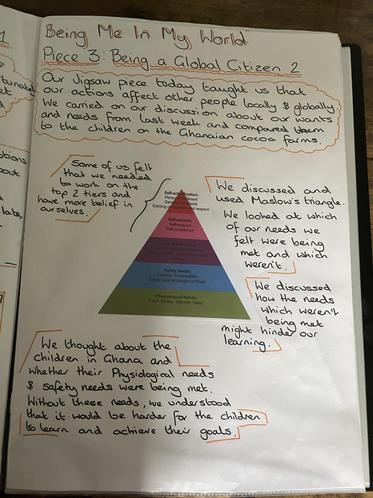 Being Me In My World
Piece 3: Being a Global Citizen 2
Our Jigsaw piece today taught us that
our actions affect other people locally & globally
We carried on our discussion about our wants
and needs from last week and compared them
to the children on the Ghanaian cocoa farms.
Some of us felt
that we needed
to work on the
top 2 tiers and
have more belief in
ourselves.
We discussed and
used Maslow's triangle.
We looked at which
of our needs we
felt were being
met and which
weren't.
We discussed
how the needs
which weren't
being met
might hinder our
learning.
Safety Needs
Physiological Needs
We thought about the
children in Ghana and
whether their Physiological needs
& safety needs were being met.
Without these needs, we understood
that it would be harder for the children
to learn and achieve their goals.